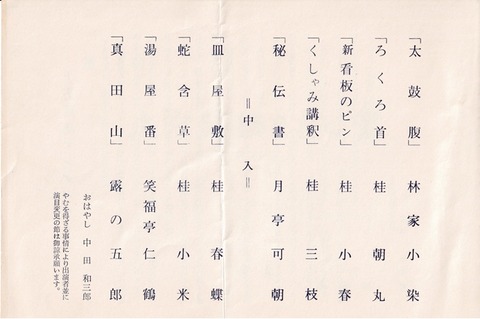 「太鼓腹」 林家小染
「ろくろ首」 桂朝丸
「新看板のピン」 桂小春
「くしゃみ講釈」 桂三枝
「秘伝書」 月亭可朝
＝中入＝
「皿屋敷」 桂春蝶
「蛇含草」 桂小米
「湯屋番」 笑福亭仁鶴
「真田山」 露の五郎
おはやし 中田和三郎
やむを得ざる事情により出演者並に
演目変更の節は御諒承願います。